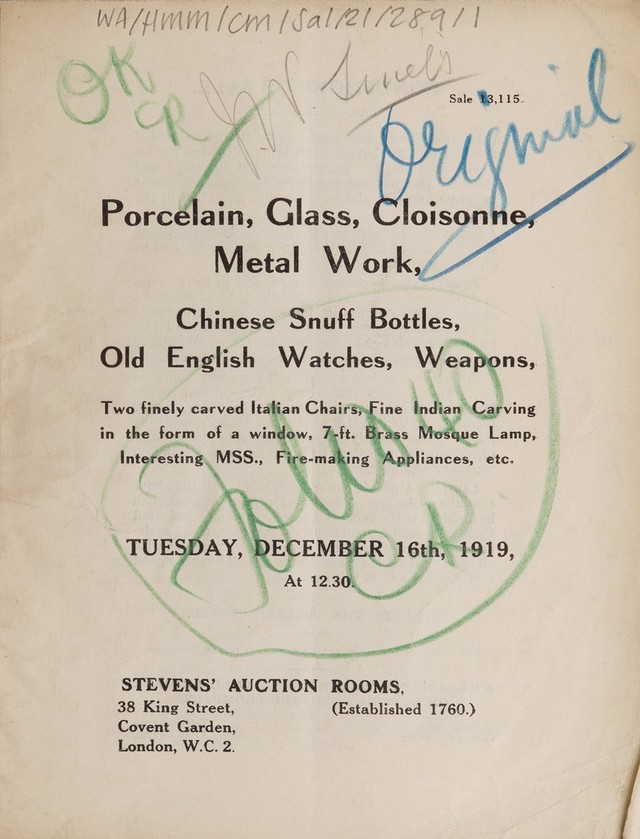 WA/HMM/CM/Sal/21/289/1
OK
CR
Sale 13,115.
Original
Porcelain, Glass, Cloisonne,
Metal Work,
Chinese Snuff Bottles,
Old English Watches, Weapons,
Two finely carved Italian Chairs, Fine Indian Carving
in the form of a window, 7-ft. Brass Mosque Lamp,
Interesting MSS., Fire-making Appliances, etc.
CR.
TUESDAY, DECEMBER 16th, 1919,
At 12.30.
STEVENS' AUCTION ROOMS,
38 King Street, (Established 1760.)
Covent Garden,
London, W.C. 2.